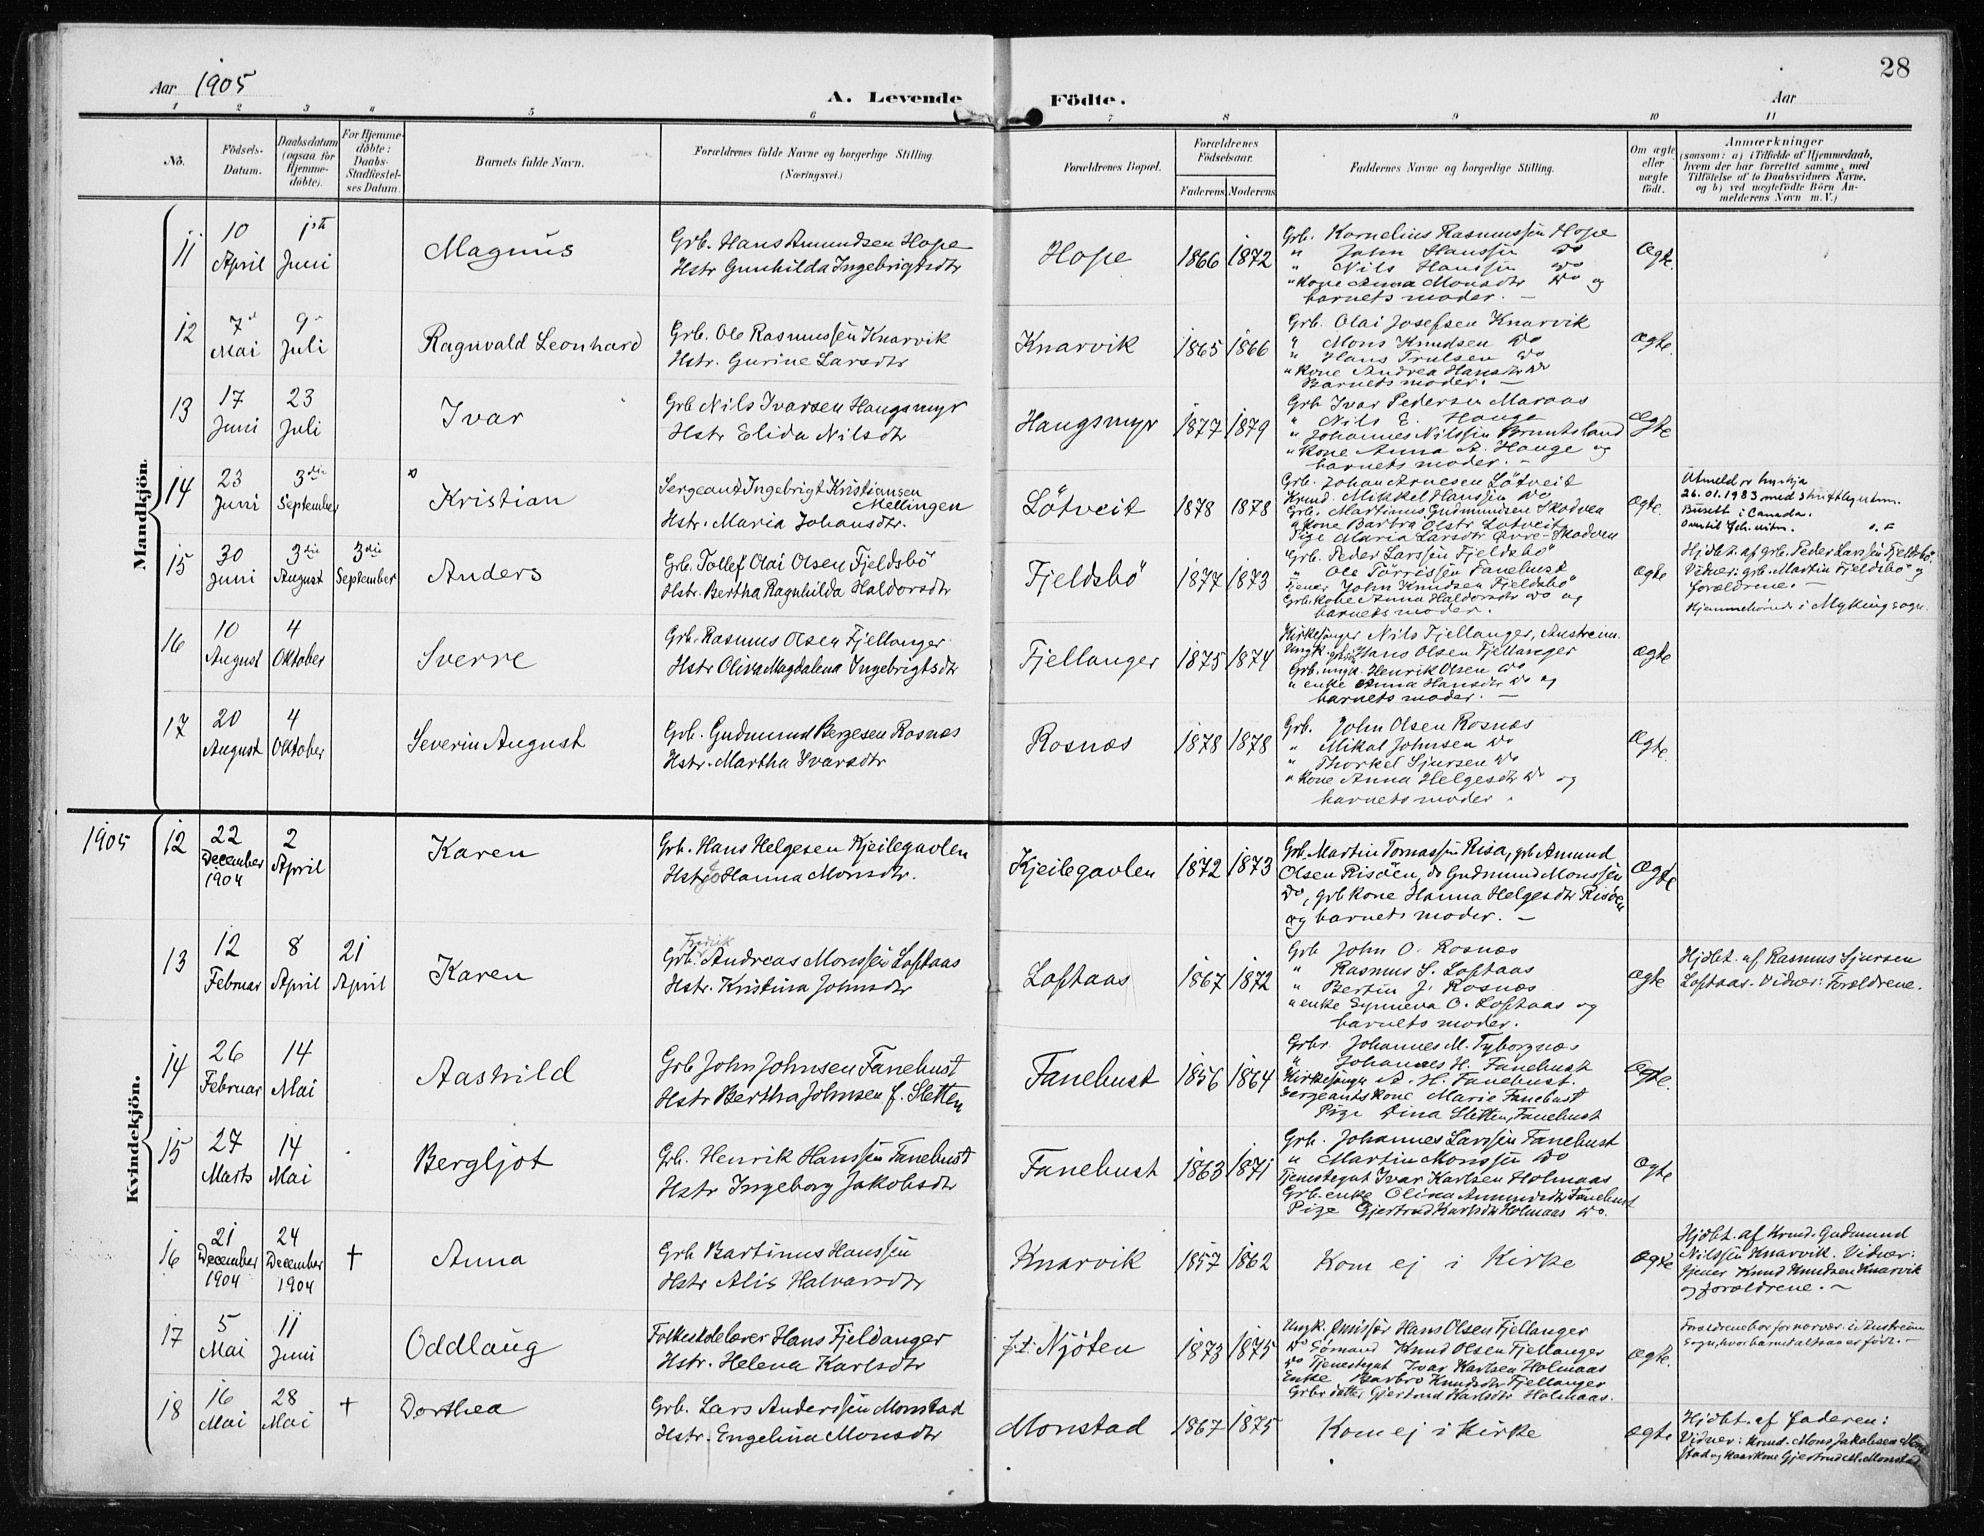 28
Aar 1905
A. Levende Födte.
Aar
1 2 3 " 5 6 7 8 9 10 11
No.
Födsels-Datum.
Daabsdatum (ogsaa for Hjemme-döbte).
For Hjemme-döbte: Daabs-Stadfæstel-ses Datum.
Barnets fulde Navn.
Forældrenes fulde Navne og borgerlige Stilling. (Næringsvei.)
Forældrenes Bopæl.
Forældrenes Födselsaar.
Faderens Moderens
Faddernes Navne og borgerlige Stilling.
Om ægte eller uægte födt.
Anmærkninger
(saasom: a) i Tilfælde af Hjemmedaab,
hvem der har forrettet samme, med
Tilföielse af to Daabsvidners Navne,
og b) ved uægtefödte Börn An-
melderens Navn m. V.)
Mandkjön.
11 10 April 1ste Juni Magnus
Grb. Hans Amundsen Hope
Hstr Gunhilda Ingebrigtsdtr
Hope 1866 1872
Grb. Kornelius Rasmussen Hope
" John Hanssen do
" Nils Hanssen do
" Kone Anna Monsdtr do og
barnets moder. —
Ægte.
12 7 Mai 9 Juli Ragnvald Leonhard
Grb. Ole Rasmussen Knarvik
Hstr. Gurine Larsdtr
Knarvik 1865 1866
Grb. Olai Josefsen Knarvik
" Mons Knudsen do
" Hans Trulsen do
" Kone Andrea Hansdtr do
Barnets moder. —
Ægte.
13 17 Juni 23 Juli Ivar
Grb Nils Ivarsen Haugsmyr
Hstr Elida Nilsdtr
Haugsmyr 1877 1879
Grb Ivar Pedersen Maraas
" Nils E. Hauge
" Johannes Nilssen Bruntsland
" Kone Anna A. Hauge og
barnets moder. —
Ægte
14 23 Juni 3die September Kristian
Sergeant Ingebrigt Kristiansen
Mellingen
Hstr. Maria Johansdtr.
Lötveit 1878 1878
Grb. Johan Arnesen Lötveit
Krmd. Mikkel Hanssen do
Grb. Martinus Gudmundsen Skodvea
" Kone Bartra Olstr Lötveit
Pige Maria Larsdtr Övre-Skodven
Ægte.
Utmeld
26.01.1983 med
Busett i Canada.
15 30 Juni 3die August 3die September Anders
Grb. Tollef Olai Olsen Fjeldsbö
Hstr. Bertha Ragnhilda Haldorsdtr
Fjeldsbö 1877 1873
Grb. Peder Larssen Fjeldsbö
" Ole Törrissen Fanebust
Tjener John Knudsen Fjeldsbö
Grb. Kone Anna Haldorsdtr do og
barnets moder.
Ægte
Hjdbt. af grb. Peder Larssen Fjeldsbö.
Vidner: grb. Martin Fjeldsbö og
forældrene. —
Hjemmehörende i Myking sogn.
16 10 August 4 Oktober Sverre
Grb. Rasmus Olsen Fjellanger
Hstr Oliva Magdalena Ingebrigtsdtr
Fjellanger 1875 1874
Kirkesanger Nils Fjellanger, Austreim.
Ungk. Hans Olsen Fjellanger
Grb. ungk. Henrik Olsen do
" enke Anna Hansdtr do og
barnets moder. —
Ægte
17 20 August 4 Oktober Severin August
Grb. Gudmund Bergesen Rosnæs
Hstr. Martha Ivarsdtr
Rosnæs 1878 1878
Grb. John Olsen Rosnæs
" Mikal Johnsen do
" Thorkel Sjursen do
" Kone Anna Helgesdtr do og
barnets moder.
Ægte.
1905
Kvindekjön.
12 22 December 1904 2 April Karen
Grb. Hans Helgesen Kjeilegavlen
Hstr. Johanna Monsdtr.
Kjeilegavlen 1872 1873
Grb. Martin Tomassen Risa, grb Amund
Olsen Risöen, do Gudmund Monssen
do, grb kone Hanna Helgesdtr Risöen
og barnets moder. —
Ægte
13 12 Februar 8 April 21 April Karen
Fredrik
Grb. Andreas Monssen Loftaas
Hstr. Kristina Johnsdtr
Loftaas 1867 1872
Grb John O. Rosnæs
" Rasmus S. Loftaas
" Bertin J. Rosnæs
" enke Synneva O. Loftaas og
barnets moder.
Ægte
Hjdbt. af Rasmus Sjursen
Loftaas. Vidner: Forældrene.
14 26 Februar 14 Mai Aashild
Grb John Johnsen Fanebust
Hstr Bertha Johnsen f. Sletten
Fanebust 1856 1864
Grbr Johannes M. Tyborgnæs
" Johannes H. Fanebust
Kirkesanger A. H. Fanebust.
Sergeants kone Marie Fanebust
Pige Dina Sletten, Fanebust
Ægte.
15 27 Marts 14 Mai Bergljot
Grb. Henrik Hanssen Fanebust
Hstr Ingeborg Jakobsdtr
Fanebust 1863 1871
Grb. Johannes Larssen Fanebust
" Martin Monssen do
Tjenestegut Ivar Karlsen Holmaas
Grb. enke Olina Amundsdtr Fanebust
Pige Gjertrud Karlsdtr Holmaas do.
Ægte
16 21 December 1904 24 December 1904 † Anna
Grb Bartinus Hanssen
Hstr Alis Halvarsdtr
Knarvik 1857 1862
Kom ej i Kirke
Ægte
Hjdbt. af Krmd. Gudmund
Nilssen Knarvik. Vidner:
tjener Knud Knudsen Knarvik
og forældrene. —
17 5 Mai 11 Juni Oddlaug
Folkeskolelærer Hans Fjeldanger
Hstr. Helena Karlsdtr
f.t. Njöten 1873 1875
Ungk. Hans Olsen Fjellanger
do Sömand Knud Olsen Fjellanger
do Tjenestegut Ivar Karlsen Holmaas
Enke Barbro Knudsdtr Fjellanger
Grbr datter Gjertrud Karlsdtr Holmaas.
Ægte.
Forældrene bor for nærvær. i Austreim
Sogn, hvor barnet altsaa er födt. —
18 16 Mai 28 Mai † Dorthea
Grb. Lars Anderssen Monstad
Hstr. Engelina Monsdtr
Monstad 1867 1875
Kom ej i Kirke
Ægte
Hjdbt. af Faderen:
Vidner: Krmd. Mons Jakobsen Mon-
stad og Kaarkone Gjertrud M. Monstad